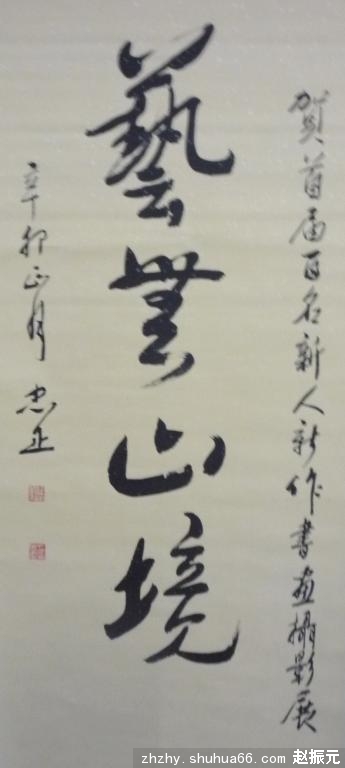 賀首届百名新人新作書畫攝影展
藝無止境
辛卯正月 忠正
zhzhy.shuhua66.com 赵振元